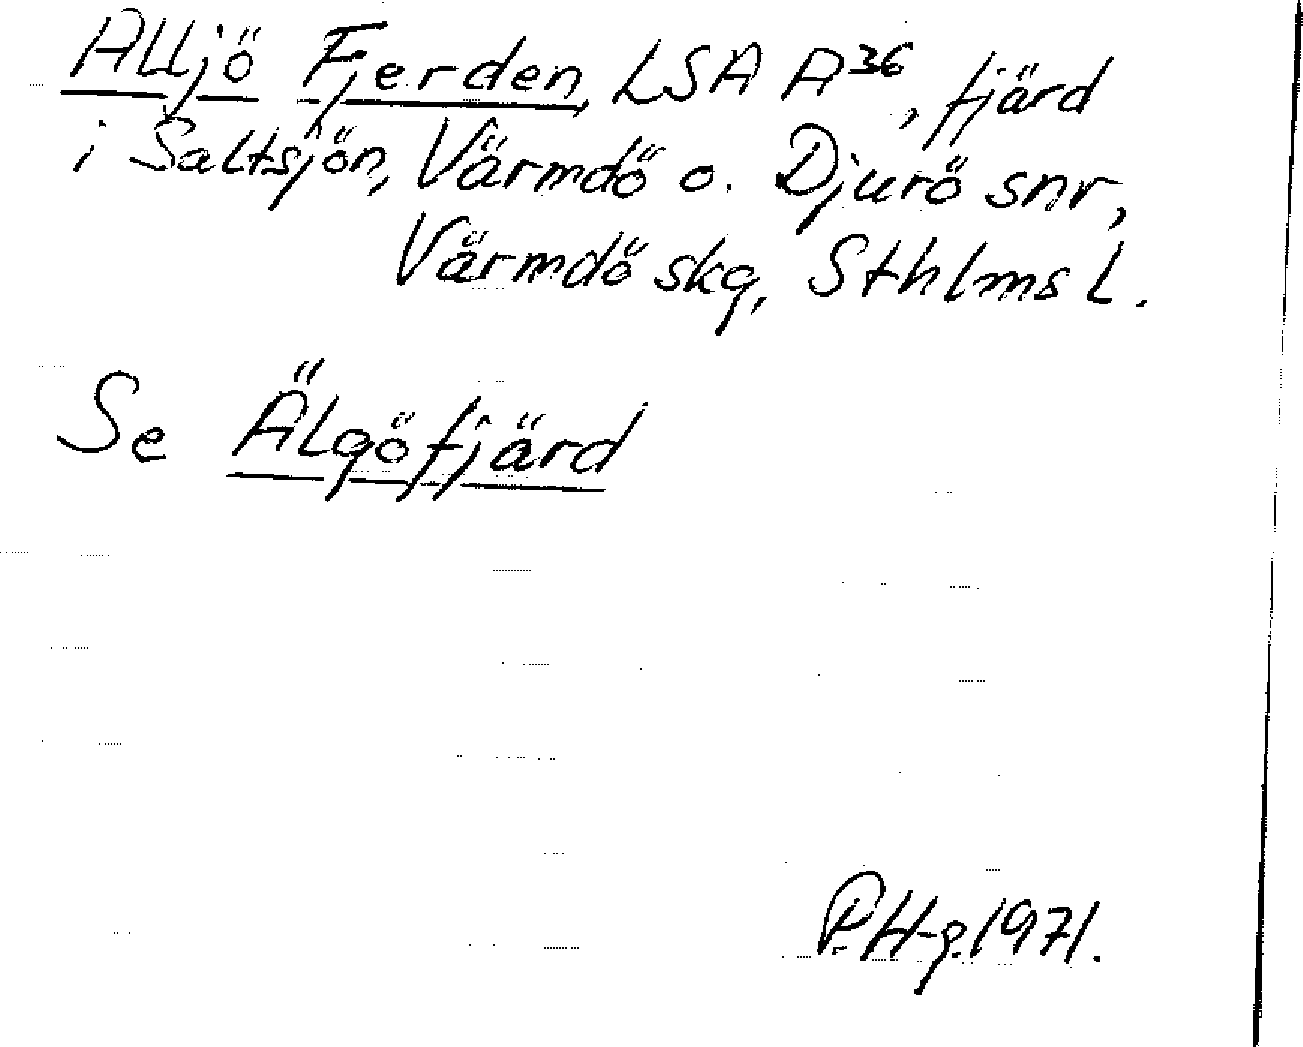 Alljö Fjerden, LSA A36, fjärd
i Saltsjön, Värmdö o. Djurö snr,
Värmdö skg, Sthlms l.
Se Älgöfjärd
P.H-g. 1971.